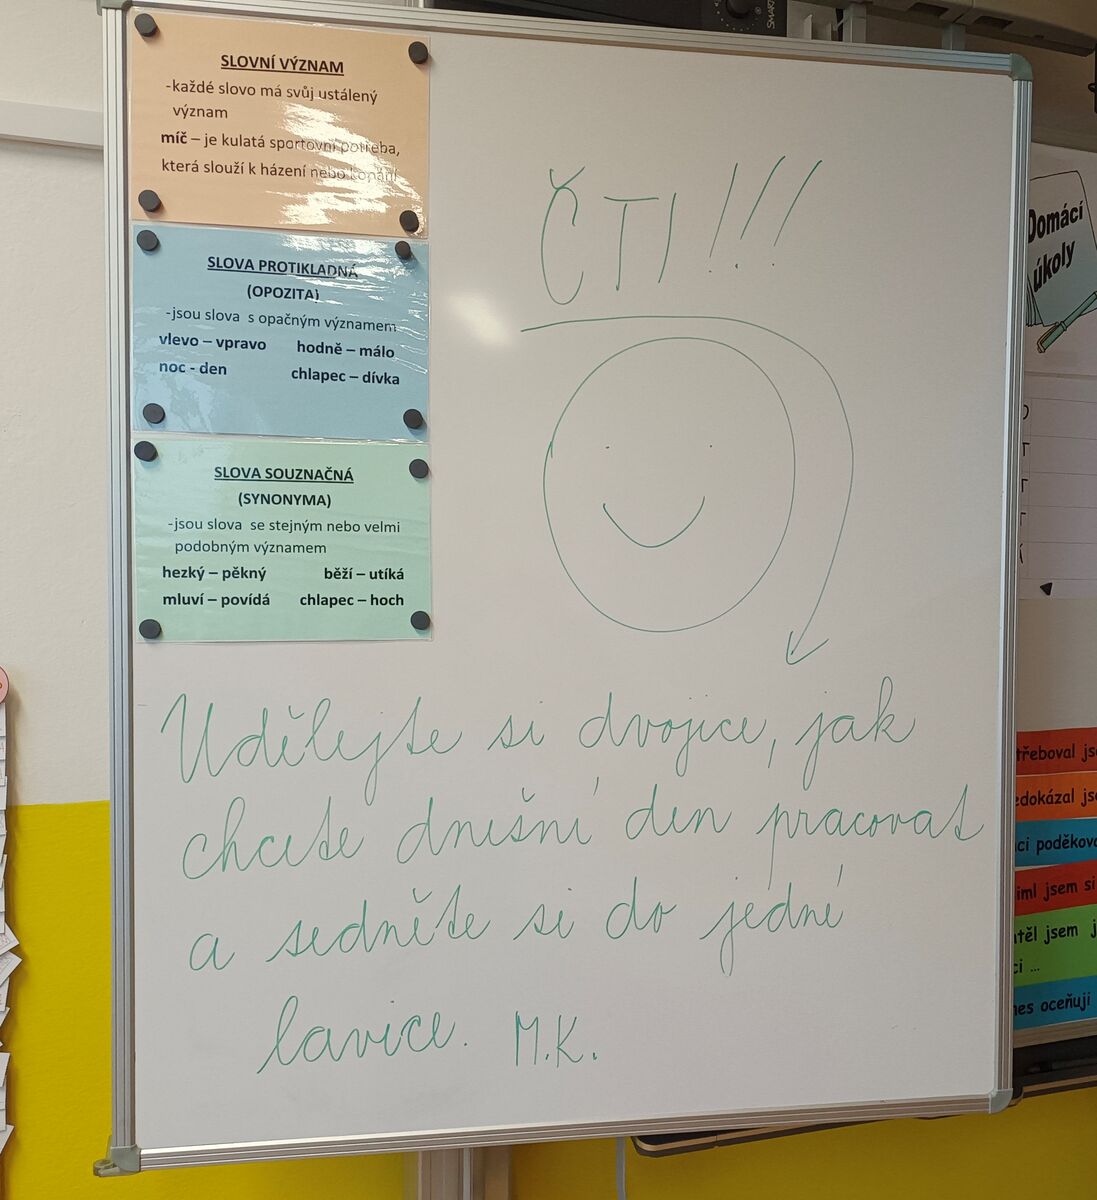 SLOVNÍ VÝZNAM
-každé slovo má svůj ustálený
význam
míč – je kulatá sportovní potřeba,
která slouží k házení nebo kopání
SLOVA PROTIKLADNÁ
(OPOZITA)
-jsou slova s opačným významem
vlevo – vpravo hodně – málo
noc - den chlapec – dívka
SLOVA SOUZNAČNÁ
(SYNONYMA)
-jsou slova se stejným nebo velmi
podobným významem
hezký – pěkný běží – utíká
mluví – povídá chlapec – hoch
ČTI!!!
Udělejte si dvojice, jak
chcete dnešní den pracovat
a sedněte si do jedné
lavice. M.K.
Domácí
úkoly
jsem
jsem si
jsem
oceňuji
SMART